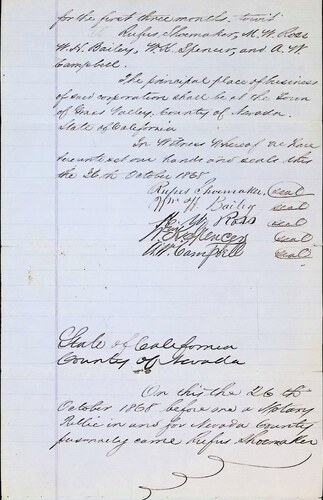 for the first three months, to wit
Rufus Shoemaker, M. W. Ross
W. H. Bailey, W. K. Spencer, and A. W.
Campbell.
The principal place of business
of said corporation shall be at the Town
of Grass Valley, County of Nevada.
State of California
In Witness Whereof we have
hereunto set our hands and seals this
the 26th October 1868
Rufus Shoemaker seal
Wm H. Bailey seal
M. W. Ross seal
W K Spencer seal
A. W. Campbell seal
State of California
County of Nevada
On this the 26th
October 1868 before me a Notary
Public in and for Nevada County
personally came Rufus Shoemaker